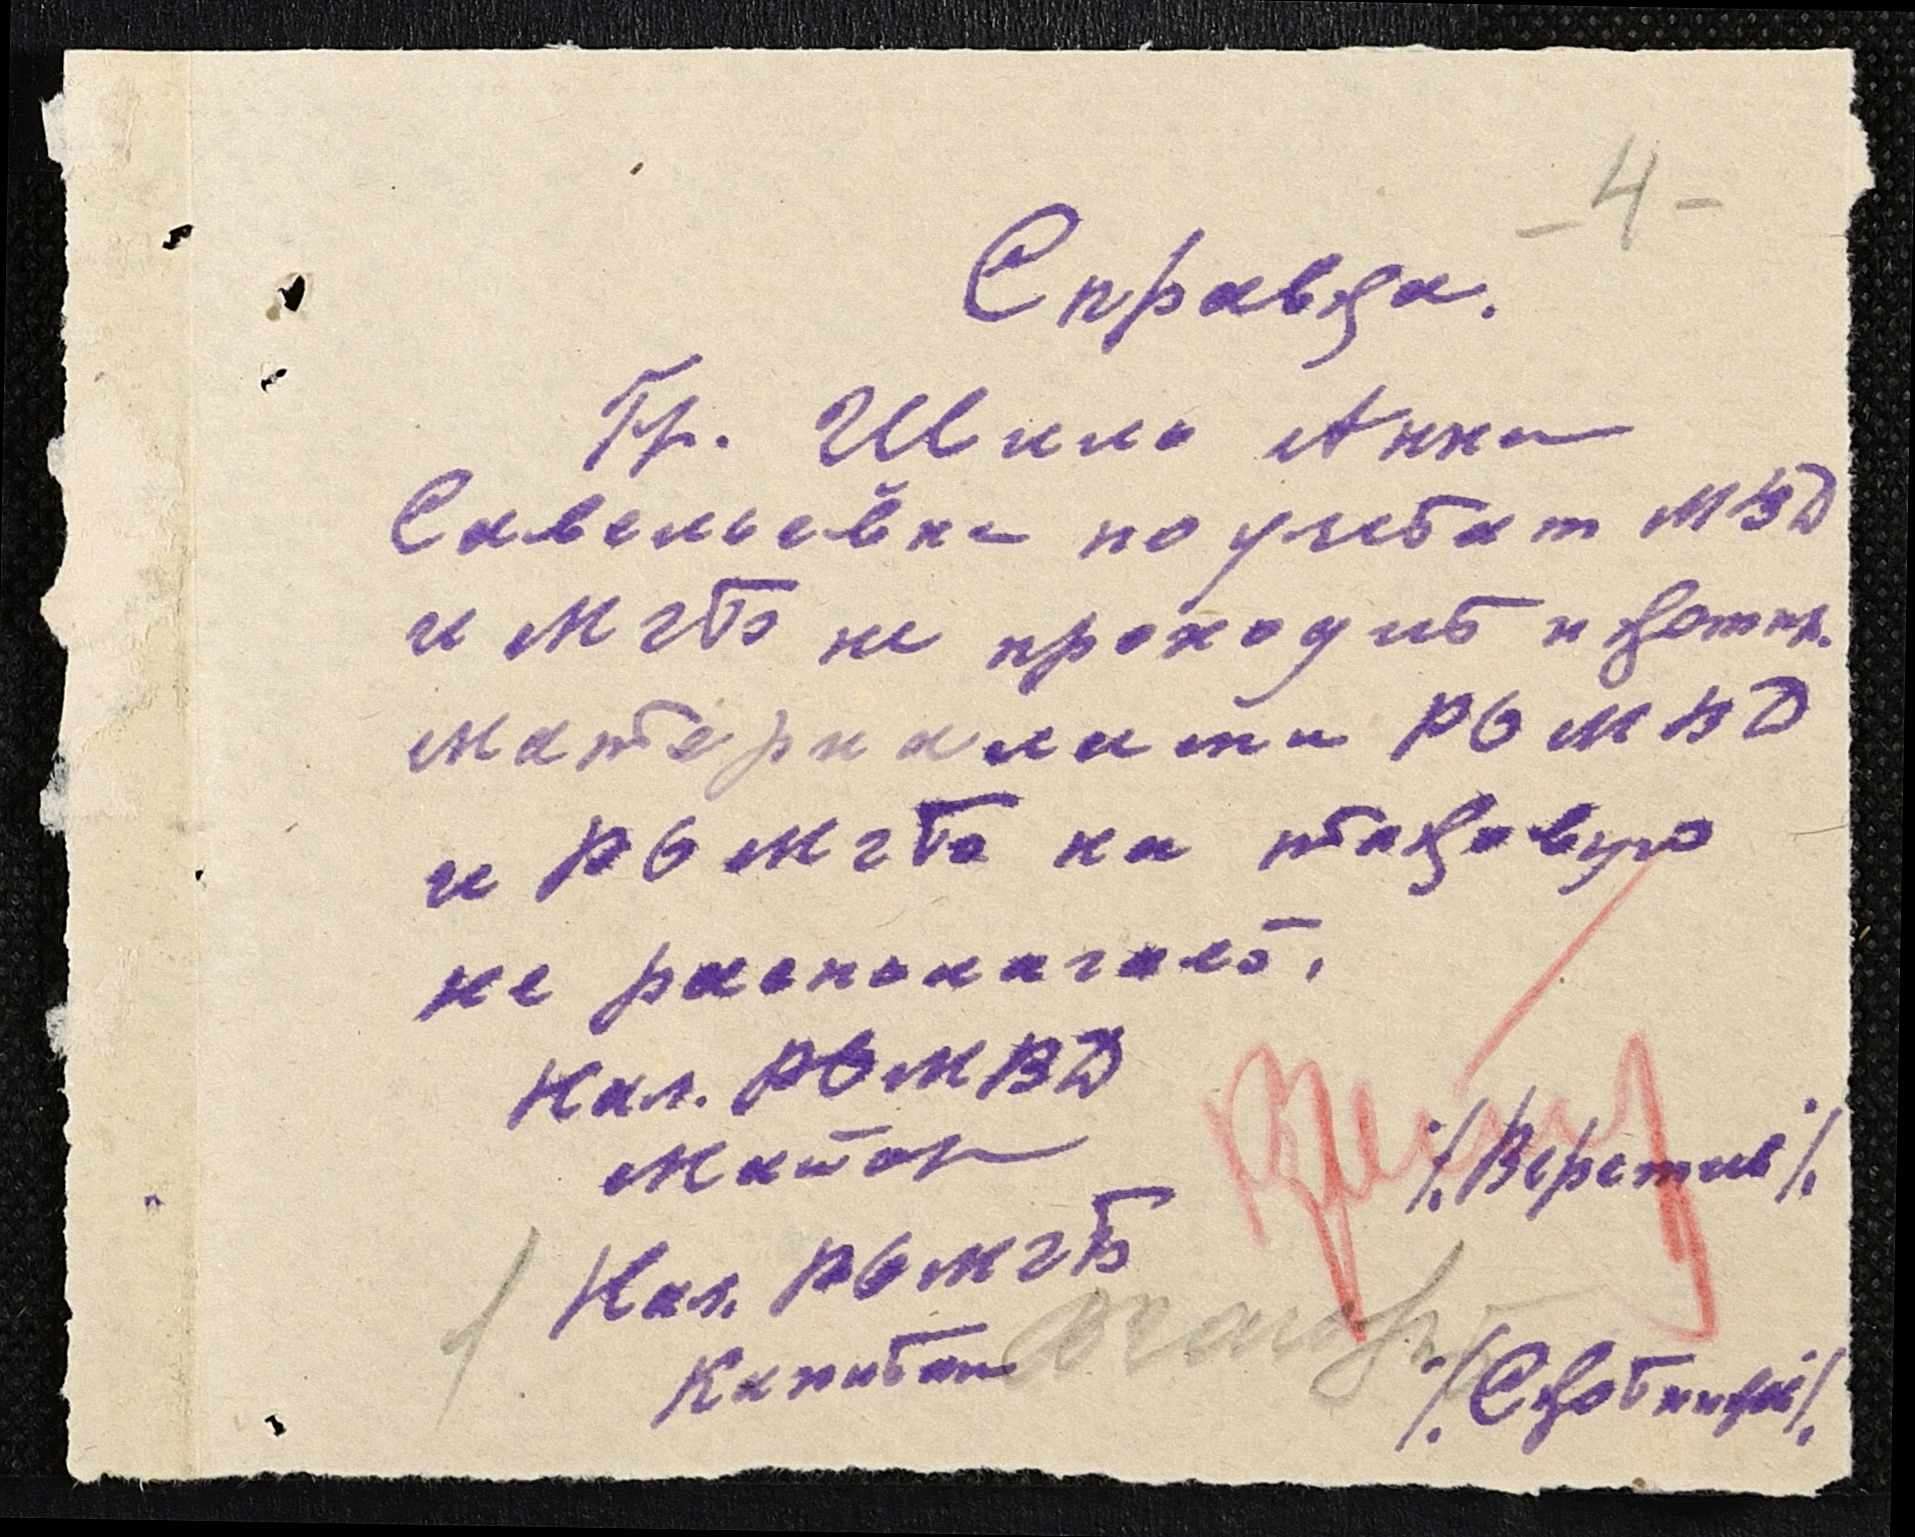 -4-
Справка.
Гр. Шило Анна
Савельевна по учетам МВД
и МГБ не проходит и компр.
материалами РО МВД
и РО МГБ на таковую
не располагает.
Нач. РОМВД
Майор /Веретин/
Нач. РОМГБ
Капитан /Скотницкий/